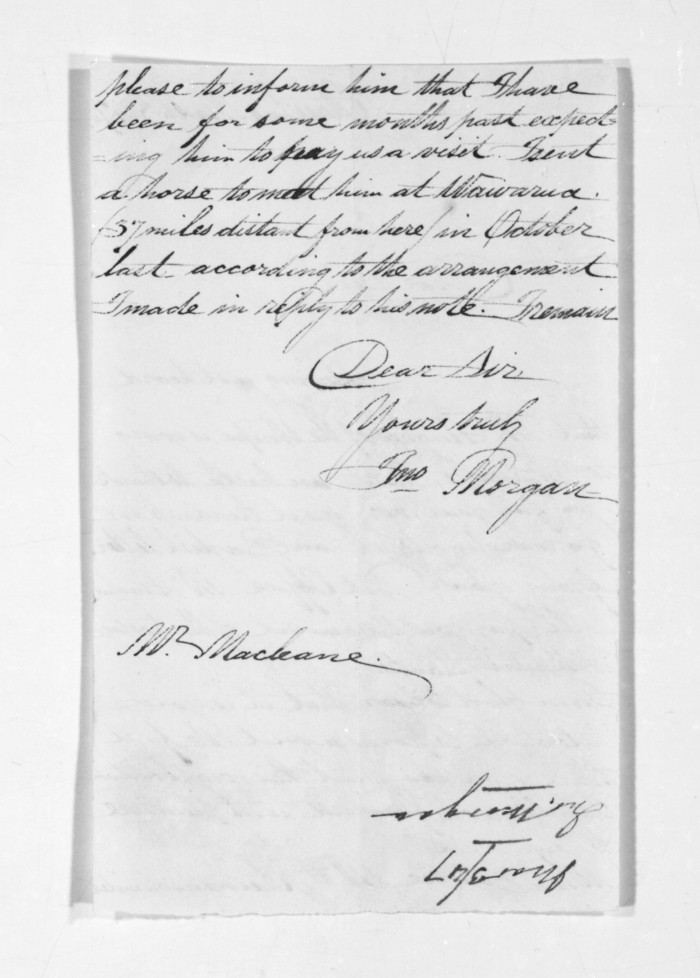 please to inform him that I have
been for some months past expect=
=ing him to pay us a visit. I sent
a horse to meet him at Wawarua.
(57 miles distant from here) in October
last - according to the arrangement
I made in reply to his note. I remain
Dear Sir
Yours truly
Jno Morgan
Mr. Macleane.
Morgan